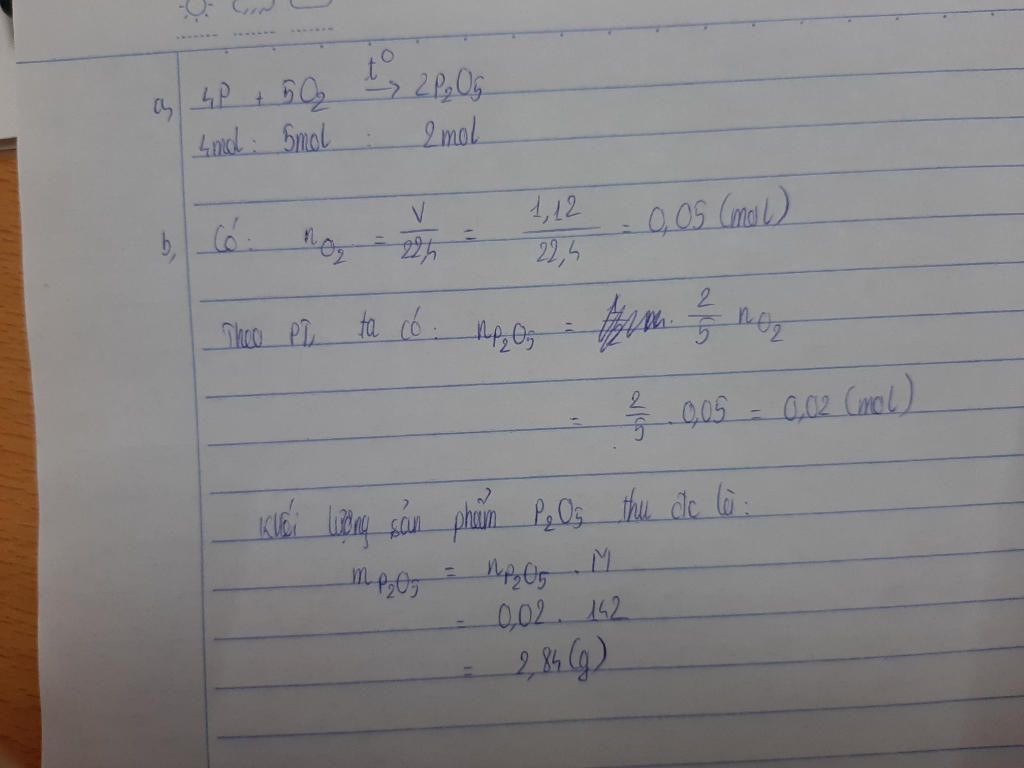 a, 4P + 5O₂ —t⁰→ 2P₂O₅
4mol : 5mol : 2mol
b, Có: n_O₂ = V/22,4 = 1,12/22,4 = 0,05 (mol)
Theo PT, ta có: n_P₂O₅ = 2/5 n_O₂
= 2/5 . 0,05 = 0,02 (mol)
Khối lượng sản phẩm P₂O₅ thu đc là:
m_P₂O₅ = n_P₂O₅ . M
= 0,02 . 142
= 2,84 (g)